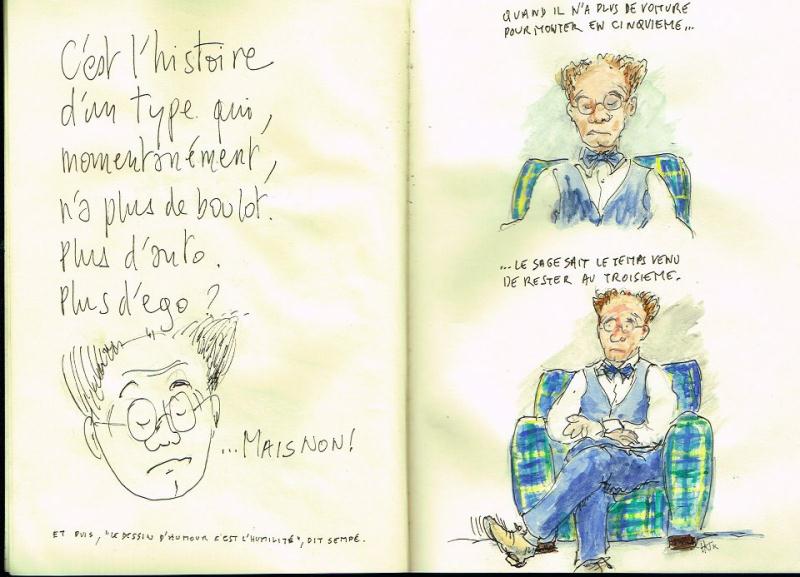 C'est l'histoire
d'un type qui,
momentanément,
n'a plus de boulot.
Plus d'auto.
Plus d'ego ?
...MAIS NON !
ET PUIS, "LE DESSIN D'HUMOUR C'EST L'HUMILITÉ", DIT SEMPÉ.
QUAND IL N'A PLUS DE VOITURE
POUR MONTER EN CINQUIEME...
...LE SAGE SAIT LE TEMPS VENU
DE RESTER AU TROISIEME.